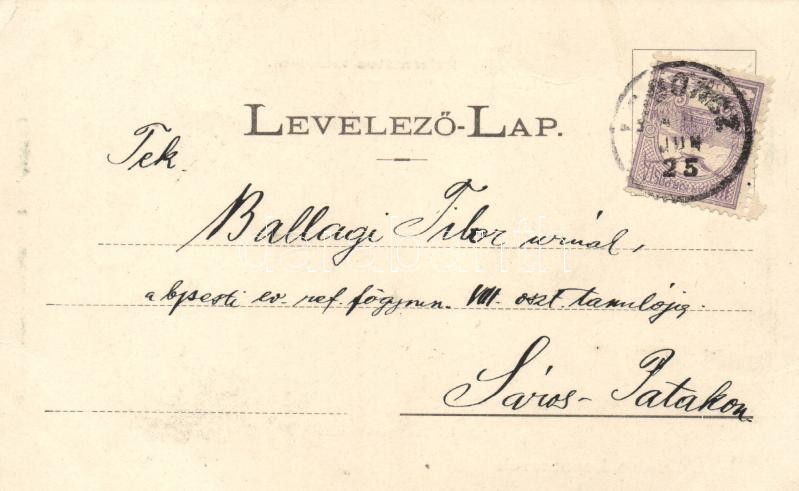 LEVELEZŐ-LAP.
Tek.
Ballagi Tibor urnál,
a bpesti ev. ref. főgymn. VIII. oszt. tanulója.
Sáros-Patakon
JUN
25